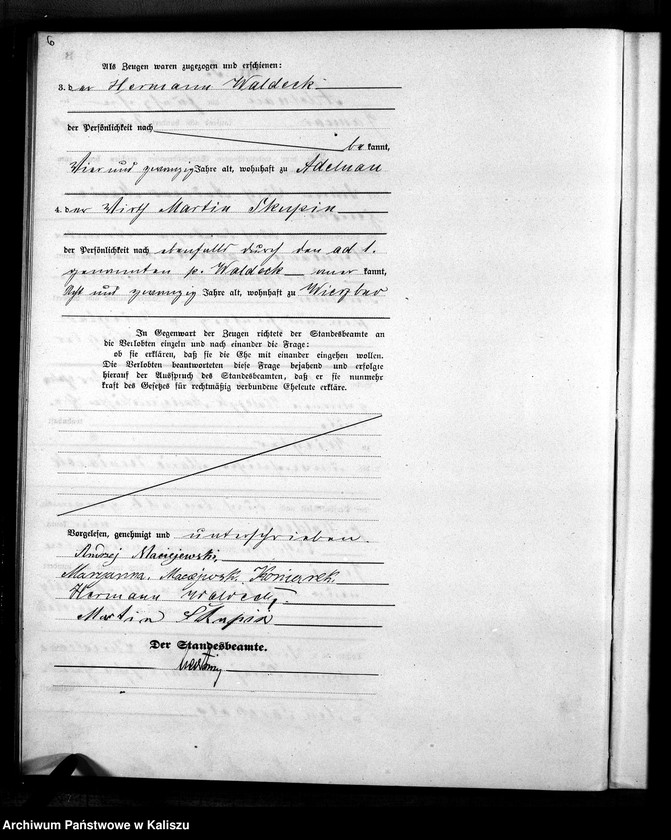 6
Als Zeugen waren zugezogen und erschienen:
3. der Hermann Waldeck
der Persönlichkeit nach
bekannt,
Vier und zwanzig Jahre alt, wohnhaft zu Adelnau
4. der Wirth Martin Skupin
der Persönlichkeit nach ebenfalls durch den ad 1.
genannten p. Waldeck anerkannt,
Acht und zwanzig Jahre alt, wohnhaft zu Wierzbno
In Gegenwart der Zeugen richtete der Standesbeamte an
die Verlobten einzeln und nach einander die Frage:
ob sie erklären, daß sie die Ehe mit einander eingehen wollen.
Die Verlobten beantworteten diese Frage bejahend und erfolgte
hierauf der Ausspruch des Standesbeamten, daß er sie nunmehr
kraft des Gesetzes für rechtmäßig verbundene Eheleute erkläre.
Vorgelesen, genehmigt und unterschrieben.
Andrzej Maciejewski,
Maryanna Koniarek
Hermann Waldeck,
Martin Skupin
Der Standesbeamte.
Archiwum Państwowe w Kaliszu